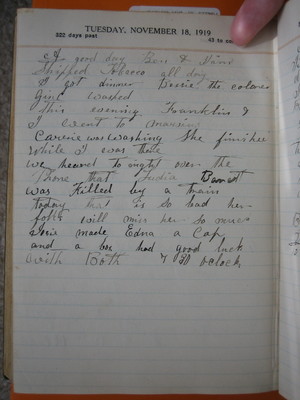 TUESDAY, NOVEMBER 18, 1919
322 days past 43 to come
A good day Ben &
Stripped Tobacco all day
I got dinner Bessie, the colored
Girl washed
This evening Franklin &
I went to
Carrie was washing She finished
while I was there
we heard to night over the
Phone that Barrett
was Killed by a train
today that is so bad her
folks will miss her so much
made Edna a Cap
and a had good luck
with Both 7 30 oclock